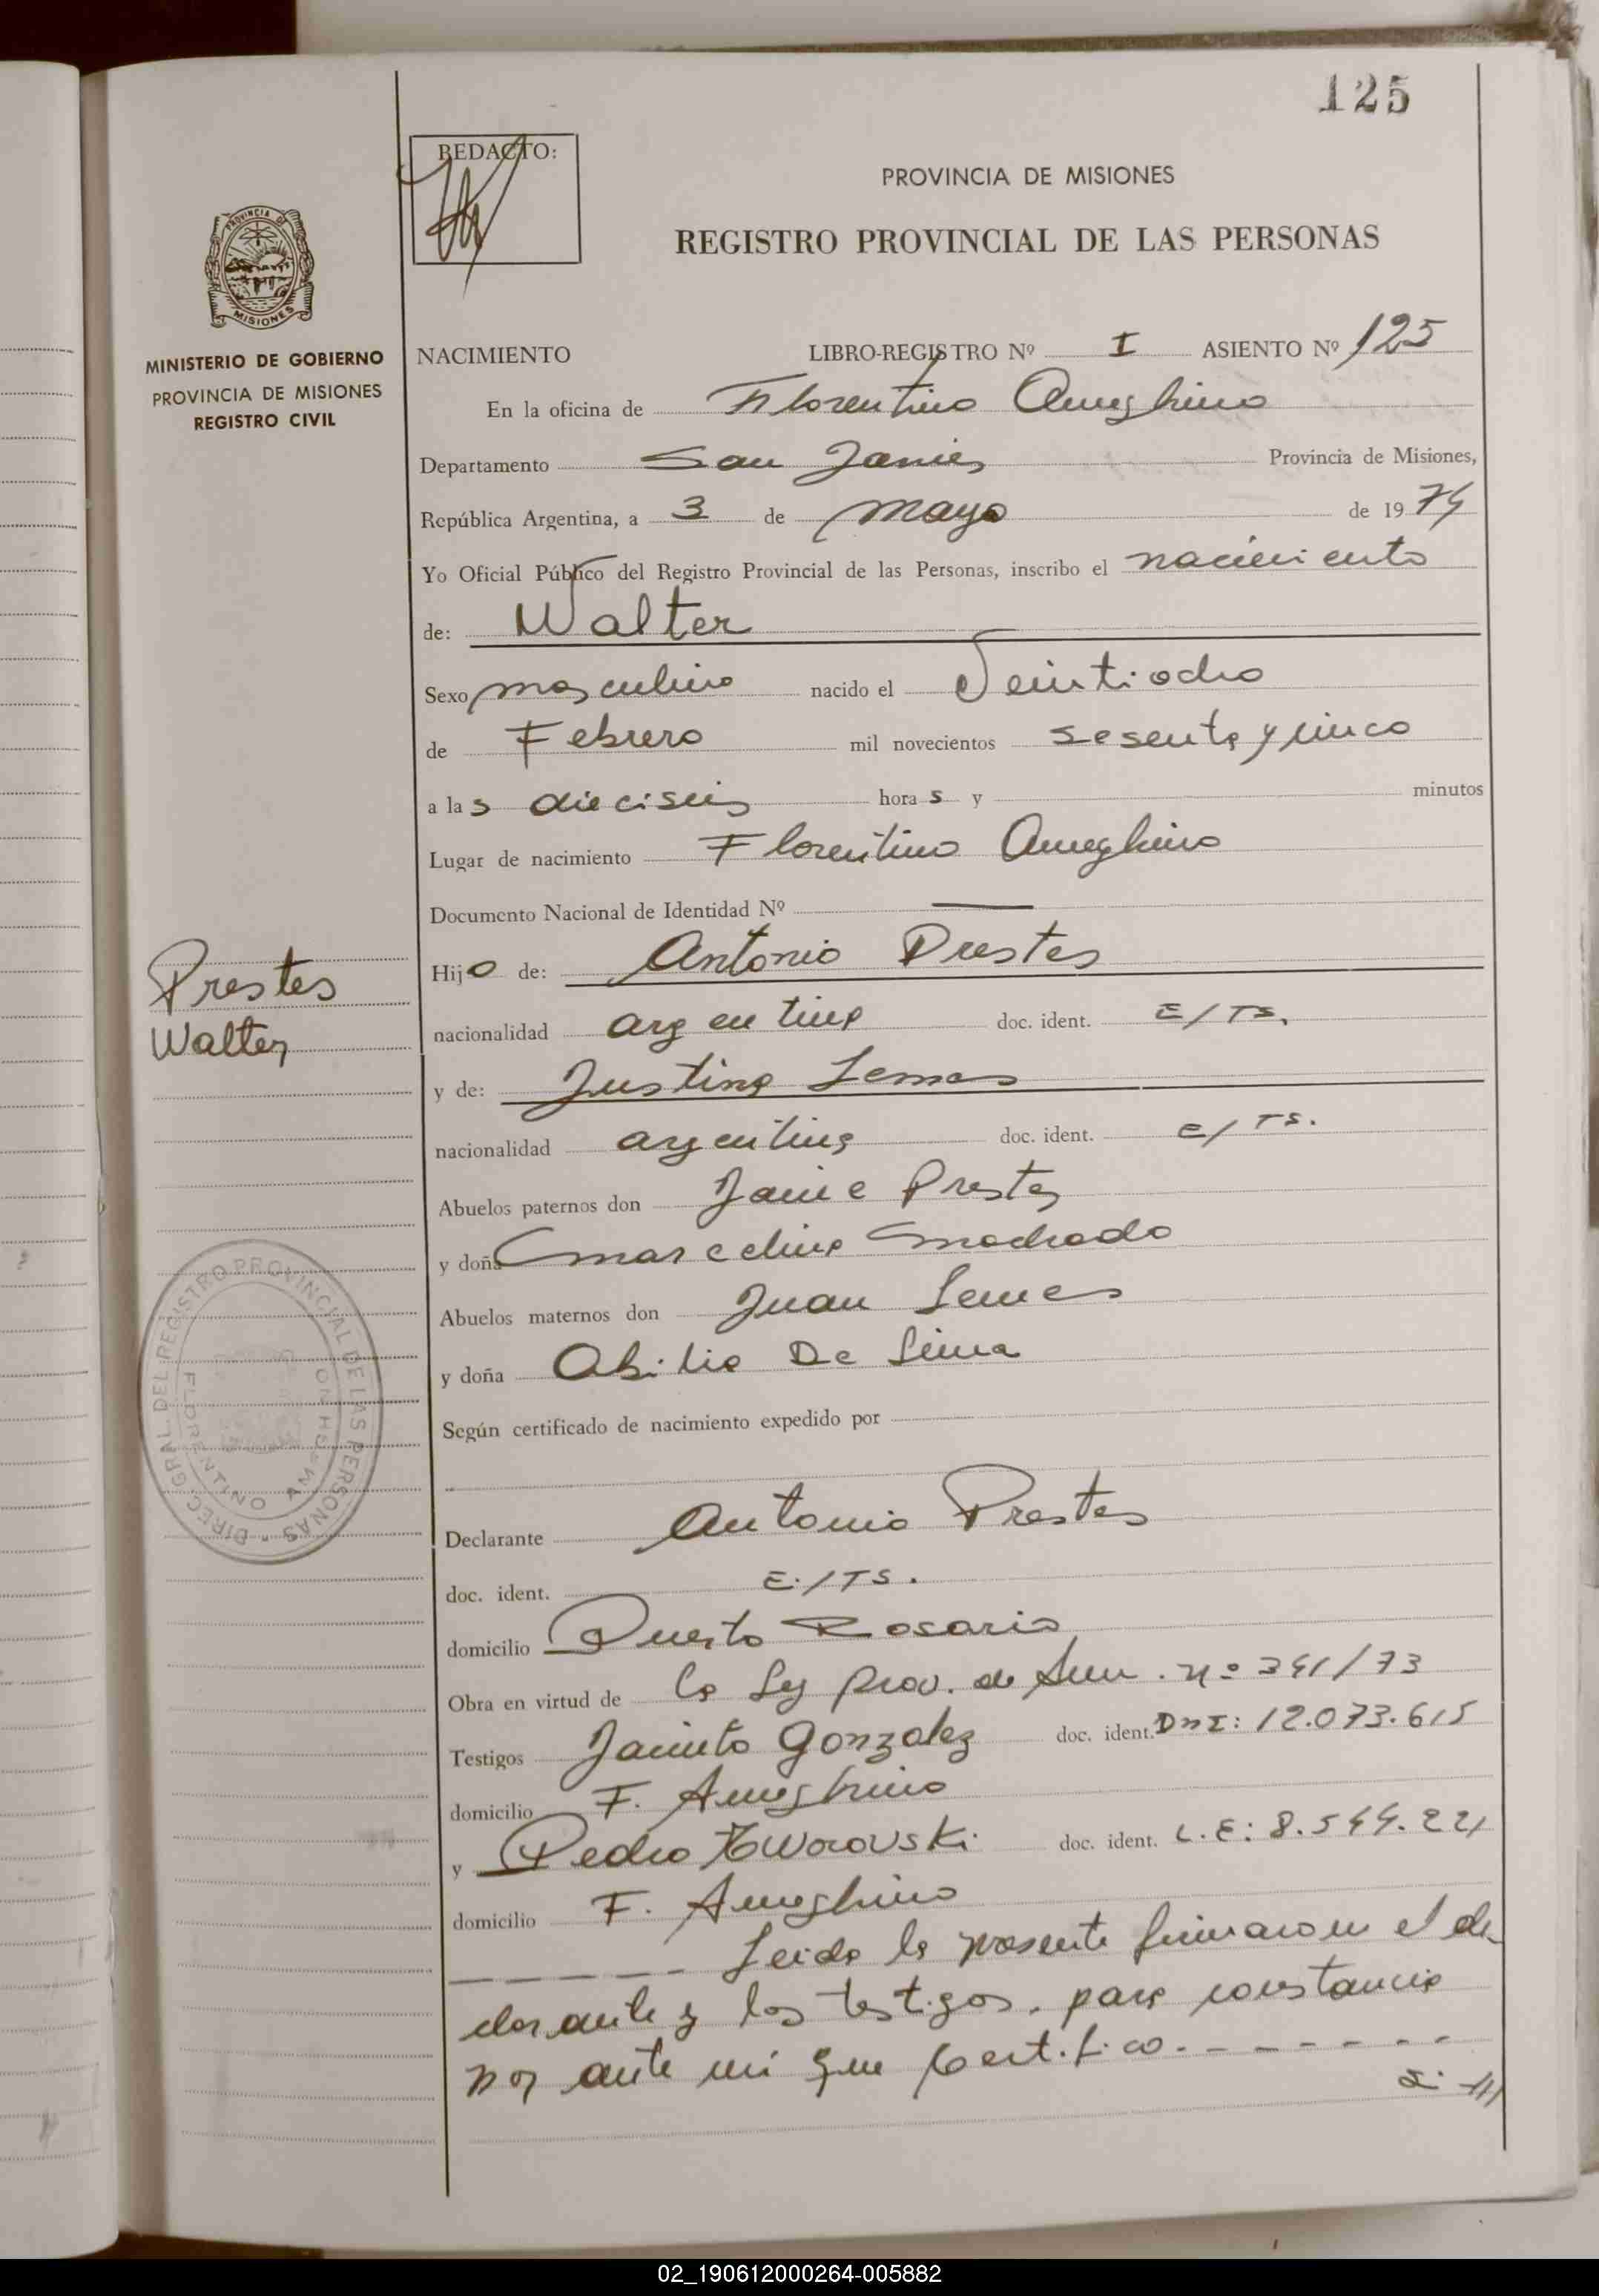 125
REDACTO:
PROVINCIA DE MISIONES
REGISTRO PROVINCIAL DE LAS PERSONAS
PROVINCIA DE MISIONES
MINISTERIO DE GOBIERNO
PROVINCIA DE MISIONES
REGISTRO CIVIL
NACIMIENTO LIBRO-REGISTRO Nº I ASIENTO Nº 125
En la oficina de Florentino Ameghino
Departamento San Javier Provincia de Misiones,
República Argentina, a 3 de Mayo de 1974
Yo Oficial Público del Registro Provincial de las Personas, inscribo el nacimiento
de: Walter
Sexo masculino nacido el Veintiocho
de Febrero mil novecientos sesenta y cinco
a las dieciseis horas y minutos
Lugar de nacimiento Florentino Ameghino
Documento Nacional de Identidad Nº —
Hijo de: Antonio Prestes
Prestes
Walter
nacionalidad argentina doc. ident. E/TS.
y de: Justina Lemes
nacionalidad argentina doc. ident. E/TS.
Abuelos paternos don Jaime Prestes
y doña Marcelina Machado
Abuelos maternos don Juan Lemes
y doña Abilia De Lima
Según certificado de nacimiento expedido por
DIREC. GRAL. DEL REGISTRO PROVINCIAL DE LAS PERSONAS
FLORENTINO AMEGHINO
Declarante Antonio Prestes
doc. ident. E./TS.
domicilio Puerto Rosario
Obra en virtud de la Ley Prov. de Nº 341/73
Testigos Jacinto Gonzalez doc. ident. DNI: 12.073.615
domicilio F. Ameghino
y Pedro doc. ident. L.E: 8.544.221
domicilio F. Ameghino
Leida la presente firmaron el de-
clarante y los testigos, para constancia
por ante mi que Certifico.
02_190612000264-005882